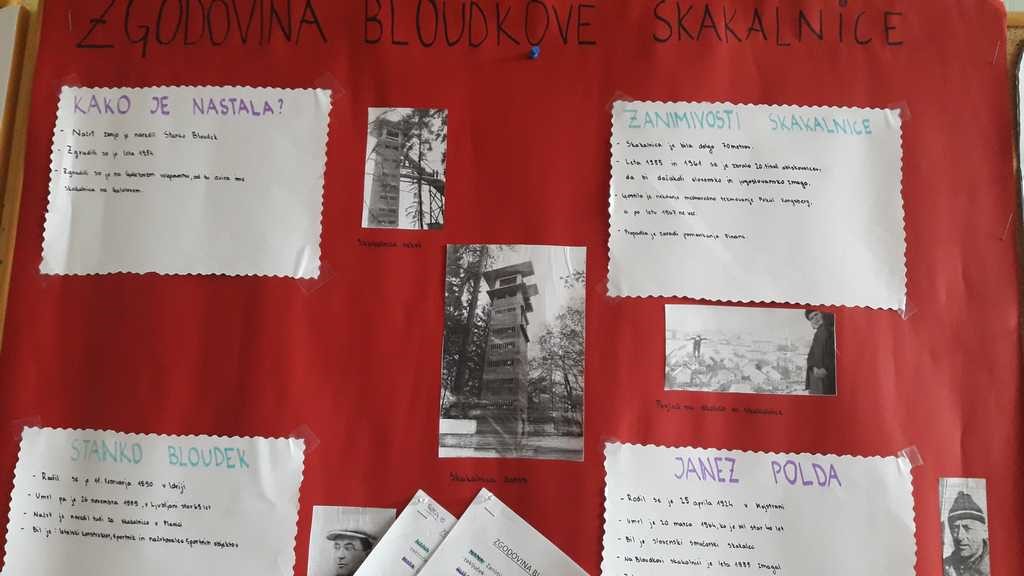 ZGODOVINA BLOUDKOVE SKAKALNICE
KAKO JE NASTALA?
- Načrt zanjo je naredil Stanko Bloudek
- Zgradili so jo leta
- Zgradili so jo na
skakalnica na
Skakalnica nekoč
ZANIMIVOSTI SKAKALNICE
- Skakalnica je bila dolga 70 metrov.
- Leta 1959 in 1961 se je zbralo 20.tisoč obiskovalcev,
da bi dočakali slovensko in jugoslovansko zmago.
Gostila je nekdanje mednarodno tekmovanje Pokal Kongsberg,
a po letu 1967 ne več.
- Propadla je zaradi pomanjkanja dinarja.
Pogled na okolico s skakalnice
Skakalnica danes
STANKO BLOUDEK
- Rodil se je 11. februarja 1890 v Idriji
- Umrl pa je 26 novembra 1959, v Ljubljani star 69 let
- Načrt je naredil tudi za skakalnico v Planici
- Bil je: letalski konstruktor, športnik in načrtovalec športnih objektov
JANEZ POLDA
- Rodil se je 25 aprila 1924 v Mojstrani
- Umrl je 20 marca 1964, ko je bil star 40 let
- Bil je slovenski smučarski skakalec
- Na Bloudkovi skakalnici je leta 1959 zmagal
ZGODOVINA BL